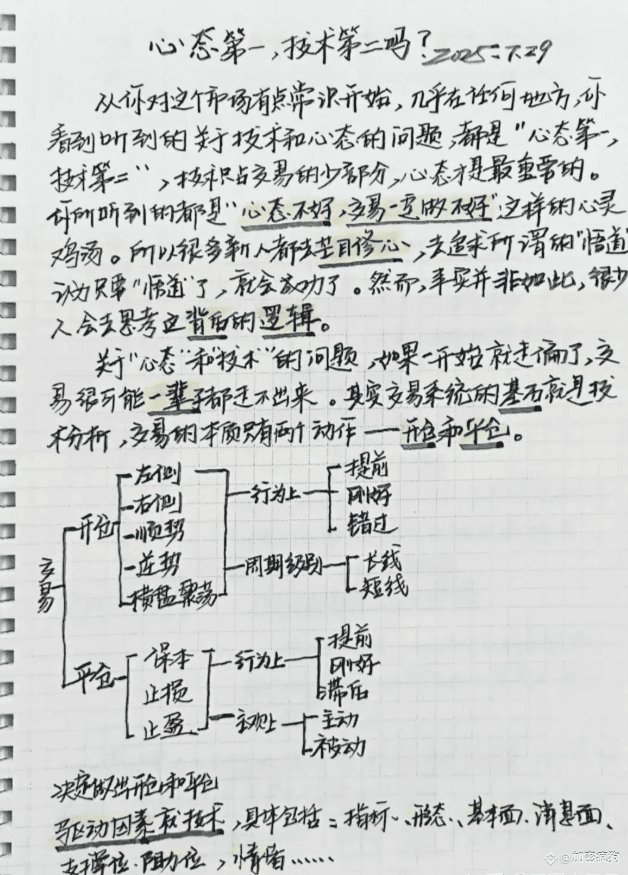 心态第一,技术第二吗? 2025.7.29
从你对这个市场有点常识开始,几乎在任何地方,你
看到听到的关于技术和心态的问题,都是"心态第一,
技术第二",技术只占交易的少部分,心态才是最重要的。
你所听到的都是"心态不好,交易一定做不好"这样的心灵
鸡汤。所以很多新人都去盲目修心,去追求所谓的"悟道"
认为只要"悟道"了,就会成功了。然而,事实并非如此,很少
人会去思考这背后的逻辑。
关于"心态"和"技术"的问题,如果一开始就走偏了,交
易很可能一辈子都走不出来。其实交易系统的基石就是技
术分析,交易的本质只有两个动作——开仓和平仓。
交易
开仓
左侧
右侧
顺势
逆势
横盘震荡
行为上
提前
刚好
错过
周期级别
长线
短线
平仓
保本
止损
止盈
行为上
提前
刚好
滞后
主观上
主动
被动
决定做出开仓和平仓
驱动因素就技术,具体包括:指标、形态、基本面、消息面、
支撑位、阻力位,情绪……
@加密疯狗